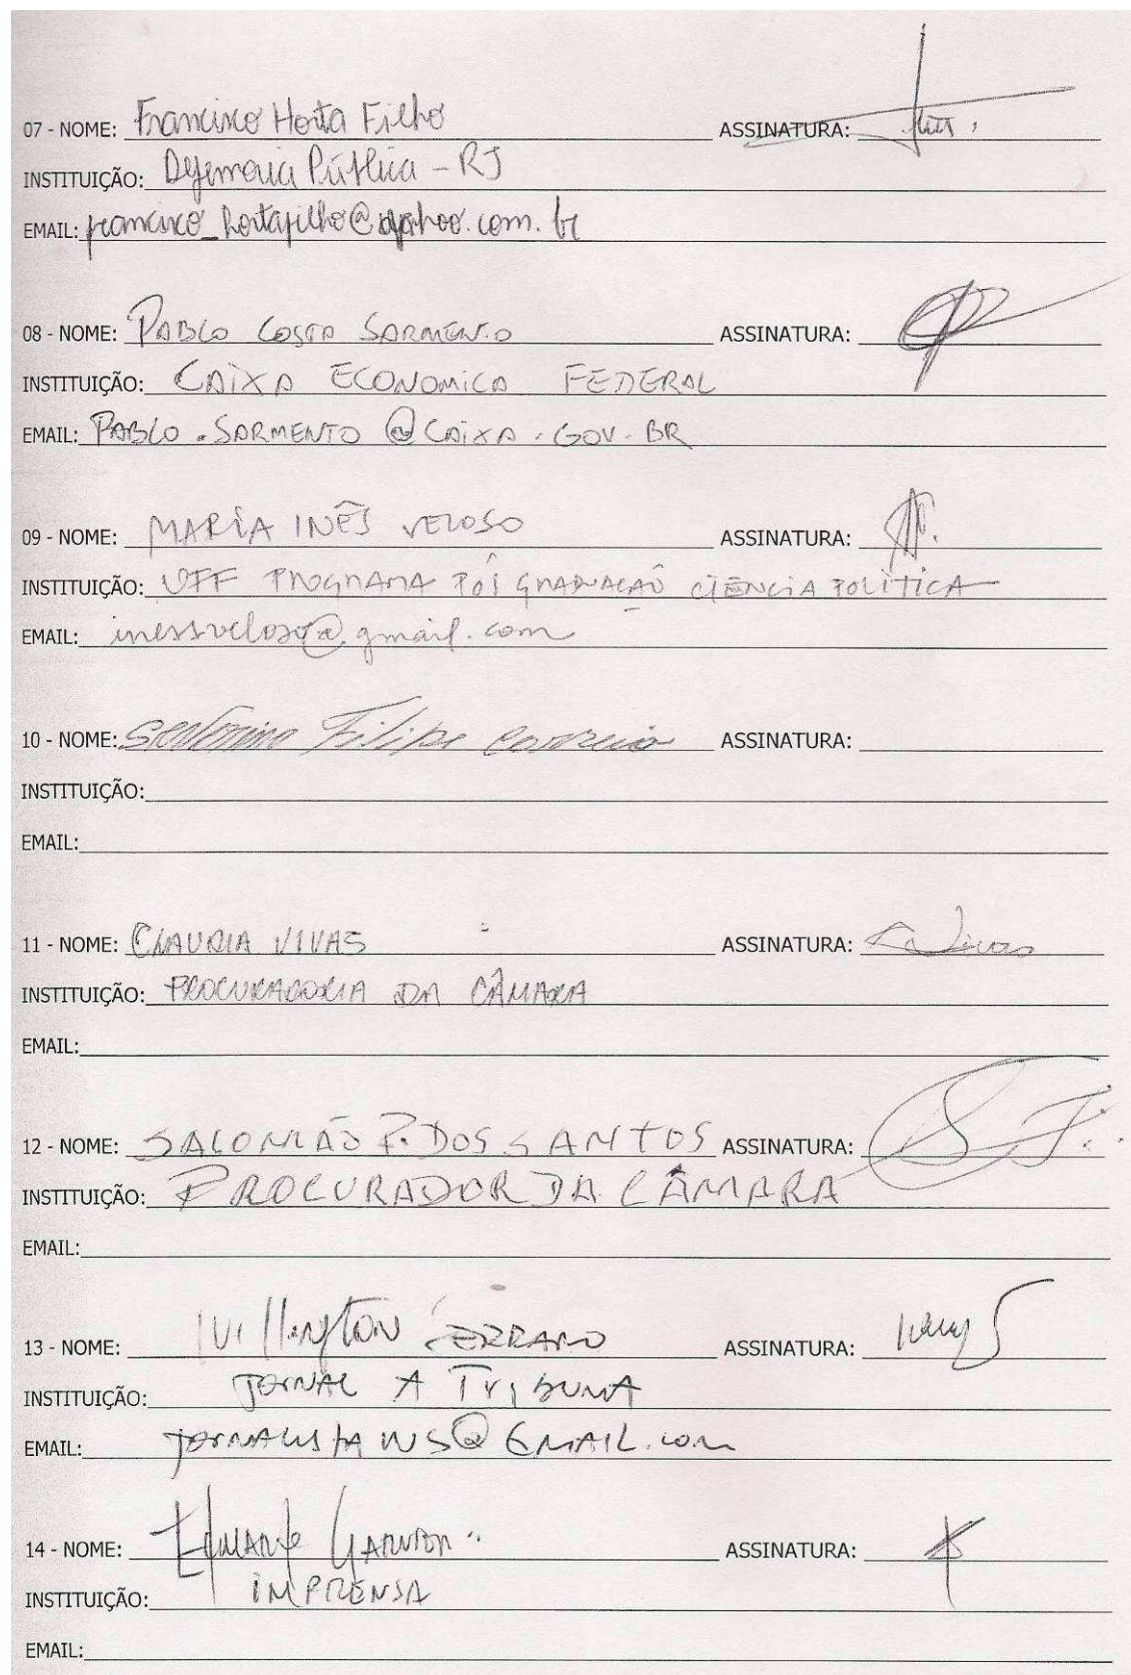 07 - NOME: Francisco Horta Filho ASSINATURA:
INSTITUIÇÃO: Defensoria Pública - RJ
EMAIL: francisco_hortafilho@yahoo.com.br
08 - NOME: PABLO COSTA SARMENTO ASSINATURA:
INSTITUIÇÃO: CAIXA ECONOMICA FEDERAL
EMAIL: PABLO.SARMENTO@CAIXA.GOV.BR
09 - NOME: MARIA INÊS VELOSO ASSINATURA:
INSTITUIÇÃO: UFF PROGRAMA PÓS GRADUAÇÃO CIÊNCIA POLÍTICA
EMAIL: inessveloso@gmail.com
10 - NOME: Filipe Correia ASSINATURA:
INSTITUIÇÃO:
EMAIL:
11 - NOME: CLAUDIA VIVAS ASSINATURA: Vivas
INSTITUIÇÃO: PROCURADORIA DA CÂMARA
EMAIL:
12 - NOME: SALOMÃO P. DOS SANTOS ASSINATURA:
INSTITUIÇÃO: PROCURADOR DA CÂMARA
EMAIL:
13 - NOME: Willington SERRANO ASSINATURA:
INSTITUIÇÃO: JORNAL A TRIBUNA
EMAIL: JORNALISTAWS@GMAIL.com
14 - NOME: ASSINATURA:
INSTITUIÇÃO: IMPRENSA
EMAIL: